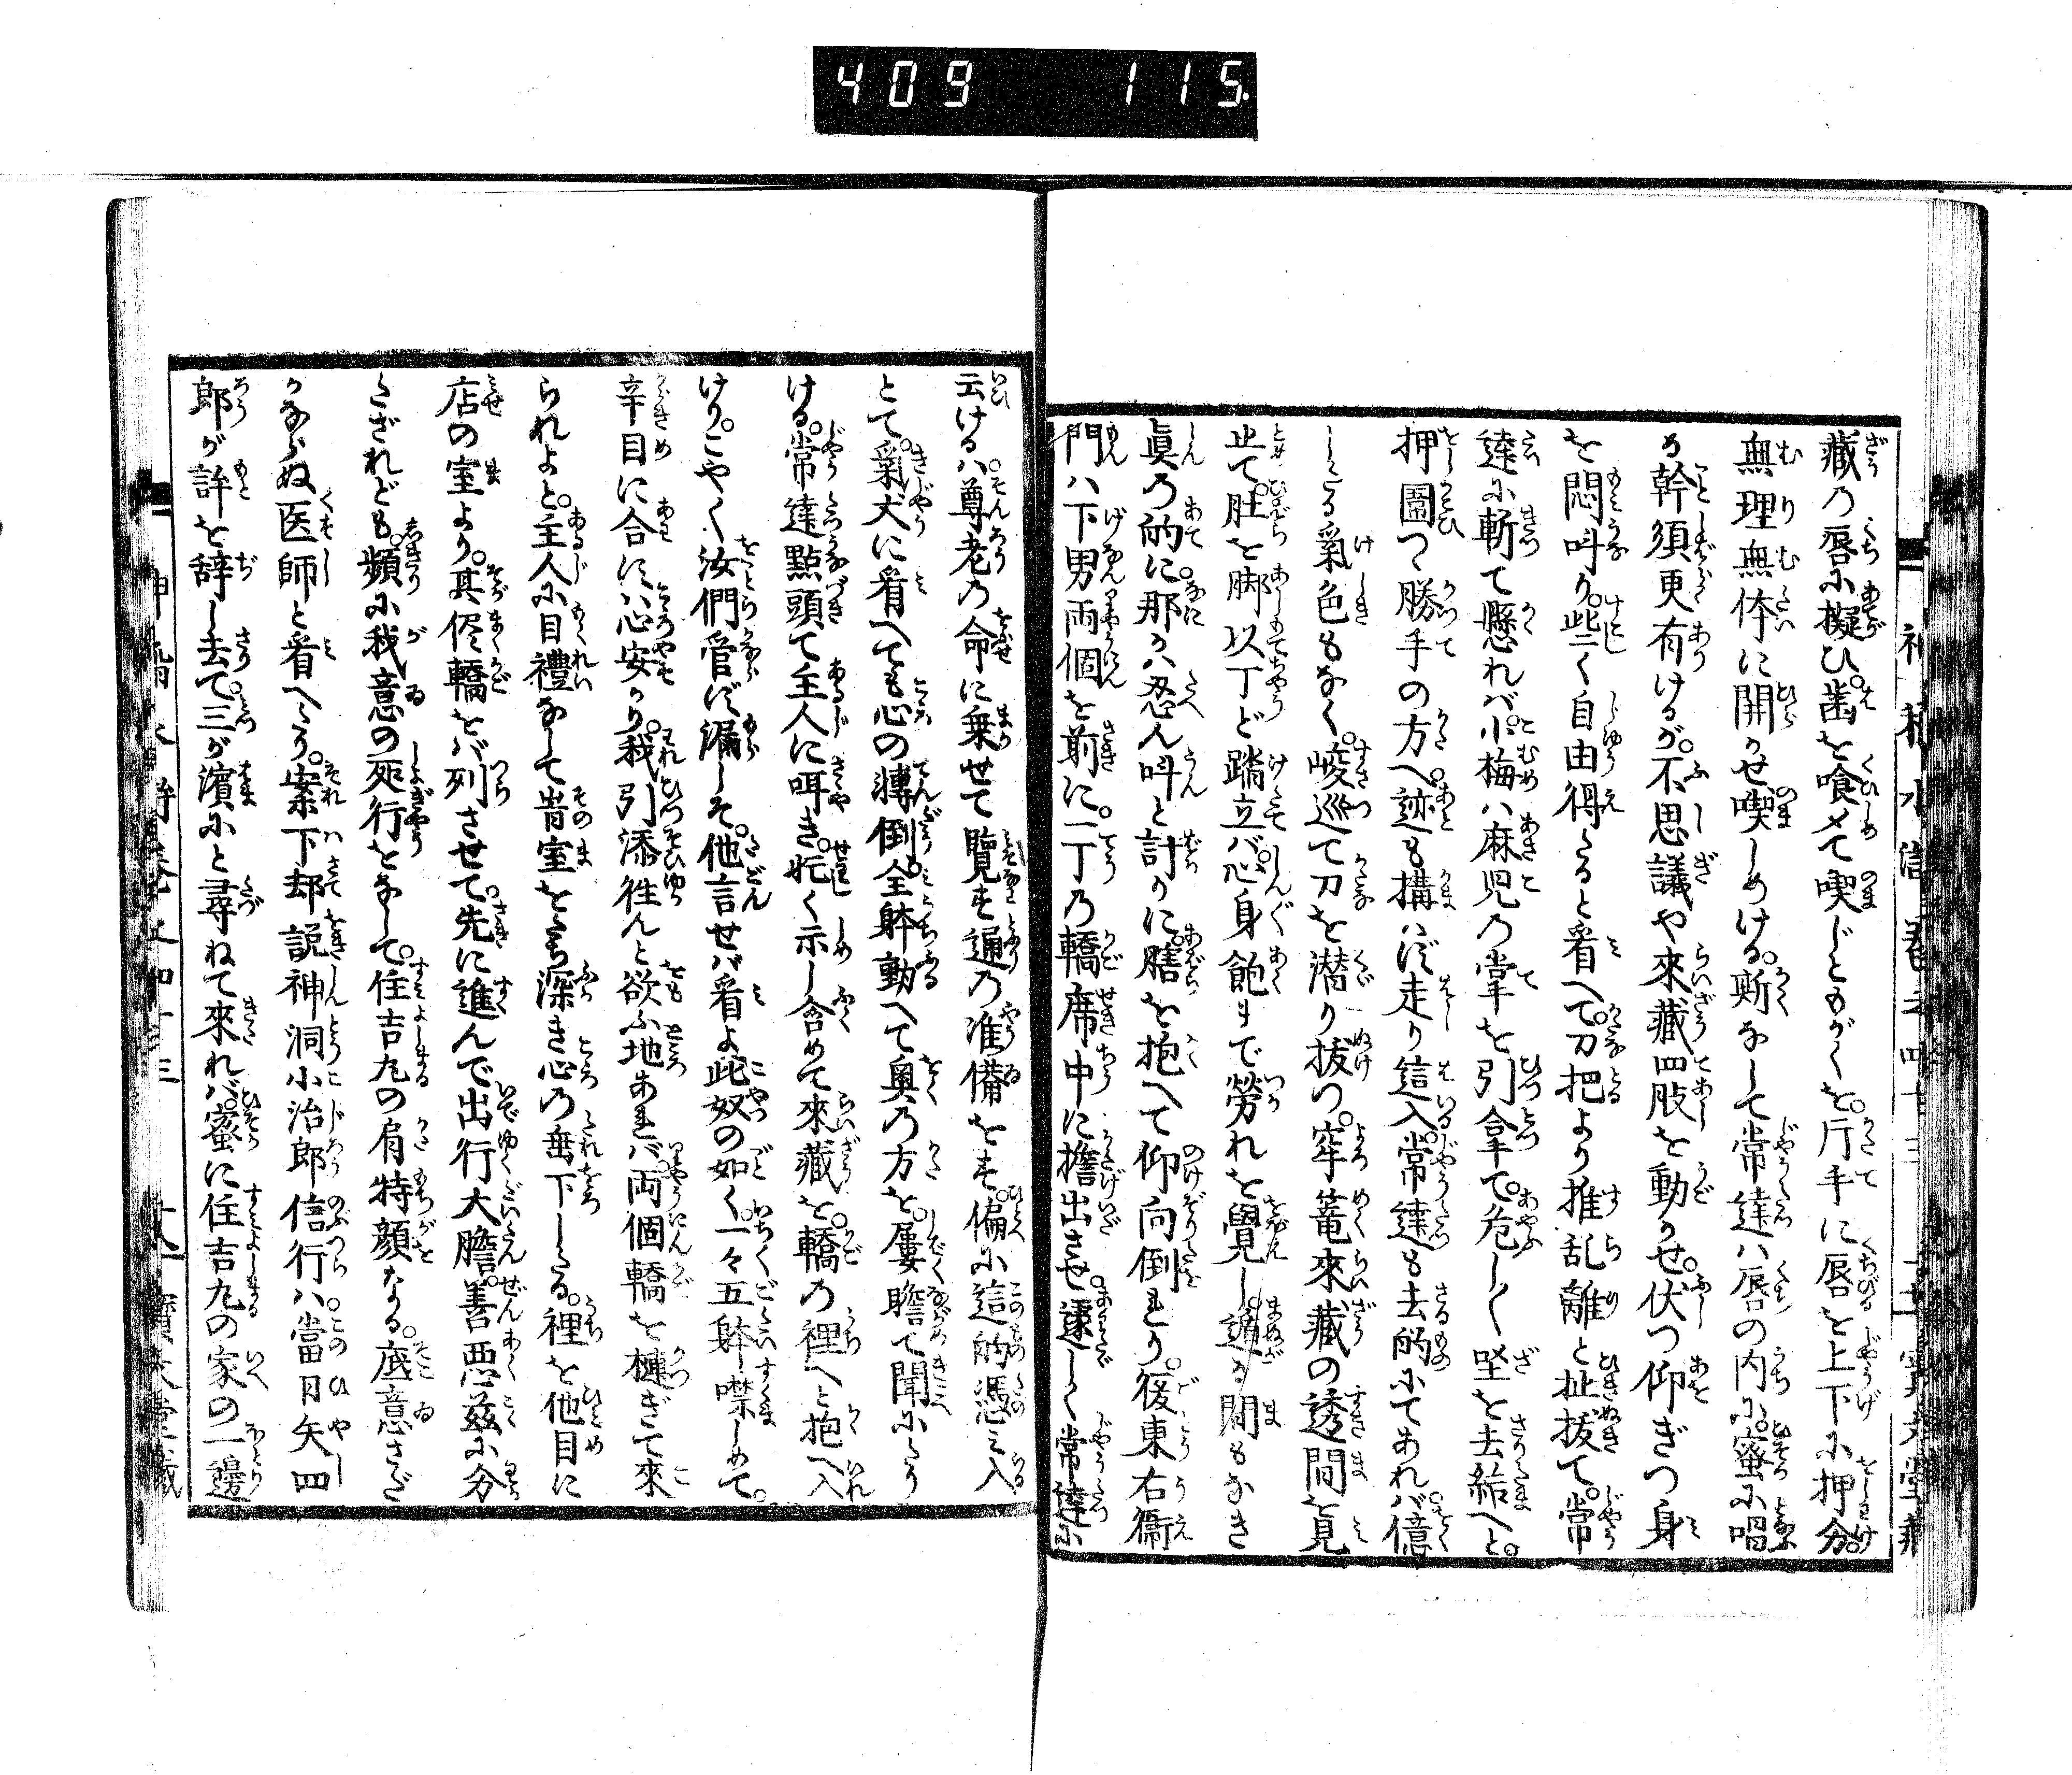 409 115.
藏の唇に擬ひ。歯を喰〆て喫じともがくを。片手に唇を上下に押分。
無理無体に開かせ喫しめける。斯なして常達ハ唇の内に。蜜に唱
る幹須更有けるが。不思議や來藏四肢を動かせ。伏つ仰ぎつ身
を悶叫り。些く自由得たると看へて。刀把より推乱離と扯抜て。常
達に斬て懸れバ。小梅ハ麻児の掌を引拿て。危しく坐を去給へと。
押圍つ勝手の方へ。迹も構ハず走り這入。常達も去的にてあれバ。億
したる氣色もなく。峻巡て刀を潜り抜つ。牢篭來藏の透間を見
止て肚を脚以丁ど踏立バ。心身飽まで勞れを覺し。遁る間もなき
眞の的に。那かハ忍ん叫と計りに。膳を抱へて仰向倒せり。復東右衞
門ハ下男両個を前に。一丁の轎席中に擔出させ。遽しく常達に
云けるハ。尊老の命に乗せて覽も通の准備をも。偏に這的憑ミ入
とて。氣丈に看へても心の轉倒。全躰動へて奥の方を。屢瞻て聞にたり
ける。常達點頭て主人に咡き。忙く示し含めて來藏を。轎の裡へと抱へ入
けり。こやく汝們菅ず漏しそ。他言せバ看よ此奴の如く。一々五躰噤しめて。
辛目に合に。ハ心安かり。我引添徃んと欲ふ地あれバ。両個轎を槤ぎて來
られよと。主人に目禮なして岢室をたち深き心の垂下したる。裡を他目に
店の室より。其侭轎をバ列させて。先に進んで出行大膽。善悪茲に分
たざれども。頻に我意の死行をなして。住吉丸の肩特顔なる。底意さだ
かならぬ医師と看へたり。案下却説神洞小治郎信行ハ。當日矢四
郎が許を辞し去て。三が濱にと尋ねて來れバ。蜜に住吉丸の家の一邊